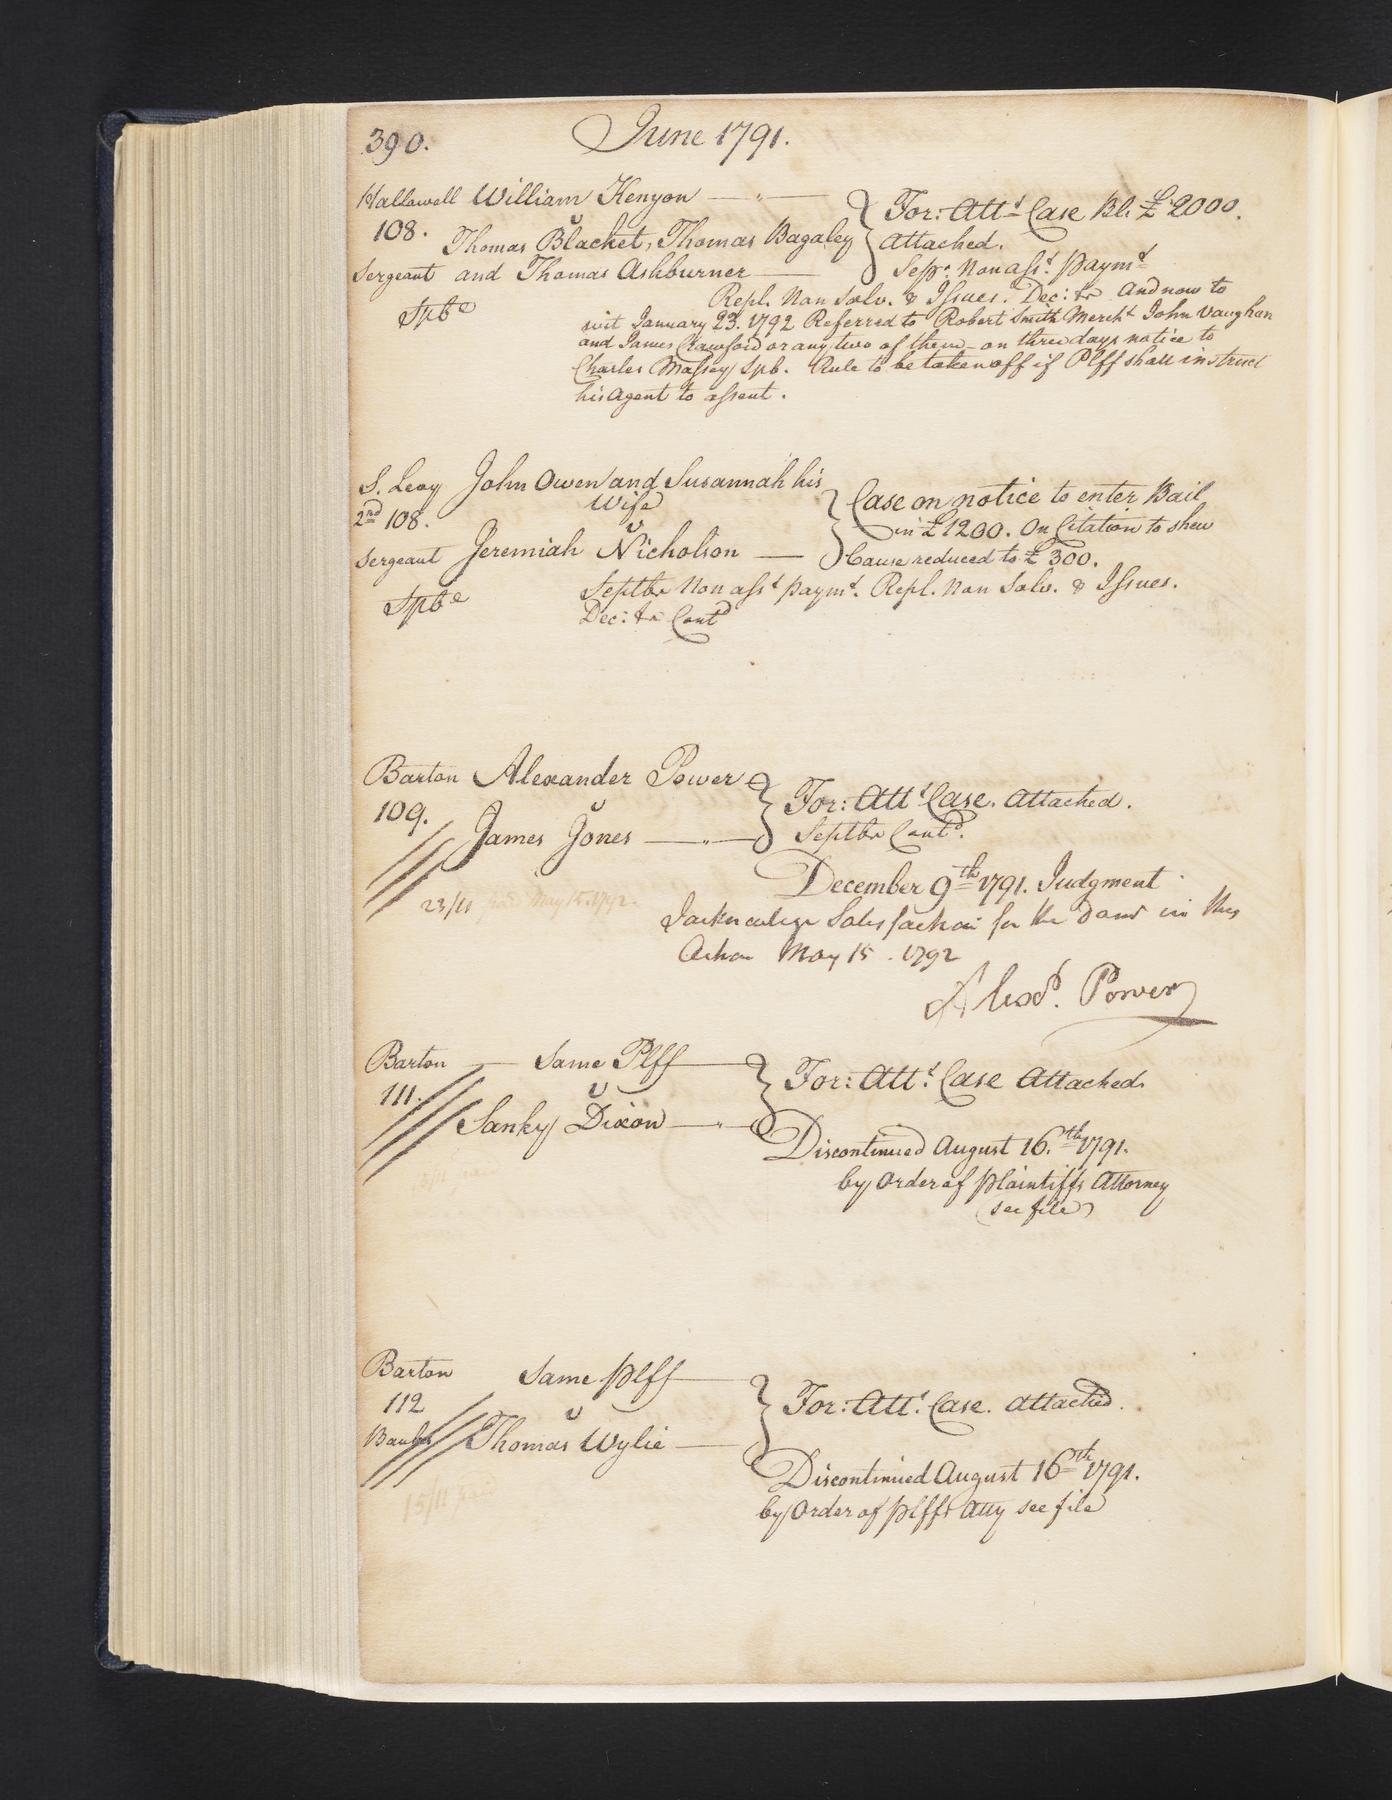 390. June 1791.
Hallowell William Kenyon
108. v
Thomas Blacket, Thomas Bagaley
Sergeant and Thomas Ashburner
Spbe
For: Attt Case Bl: £ 2000.
Attached.
Sepr. Non asst. paymt
Repl. Non Solv. & Issues. Dec: &r And now to
wit January 23. 1792 Referred to Robert Smith Mercht John Vaughan
and James Crawford or any two of them - on three days notice to
Charles Massey Spb. Rule to be taken off if Plff shall instruct
his Agent to assent.
S. Levy John Owen and Susannah his
Wife
2nd 108. v
Sergeant Jeremiah Nicholson
Spbe
Case on notice to enter Bail
in £1200. On Citation to shew
Cause reduced to £ 300.
Septbr Non asst paymt. Repl. Non Solv. & Issues.
Dec: &r Contd
Barton Alexander Power
109. v
James Jones
For: Attt Case. Attached.
Septbr Contd.
December 9th 1791. Judgment
23/11 paid May 15. 1792.
I acknowledge Satisfaction for the Damr in this
Action May 15. 1792
Alexd. Power
Barton Same Plff
111. v
Sanky Dixon
For: Attt Case Attached.
Discontinued August 16th 1791.
by Order of plaintiffs Attorney
(see file)
Barton Same plff
112 v
Thomas Wylie
For: Attt. Case. Attached.
Discontinued August 16th 1791.
by Order of plffs Atty see file
15/11 paid